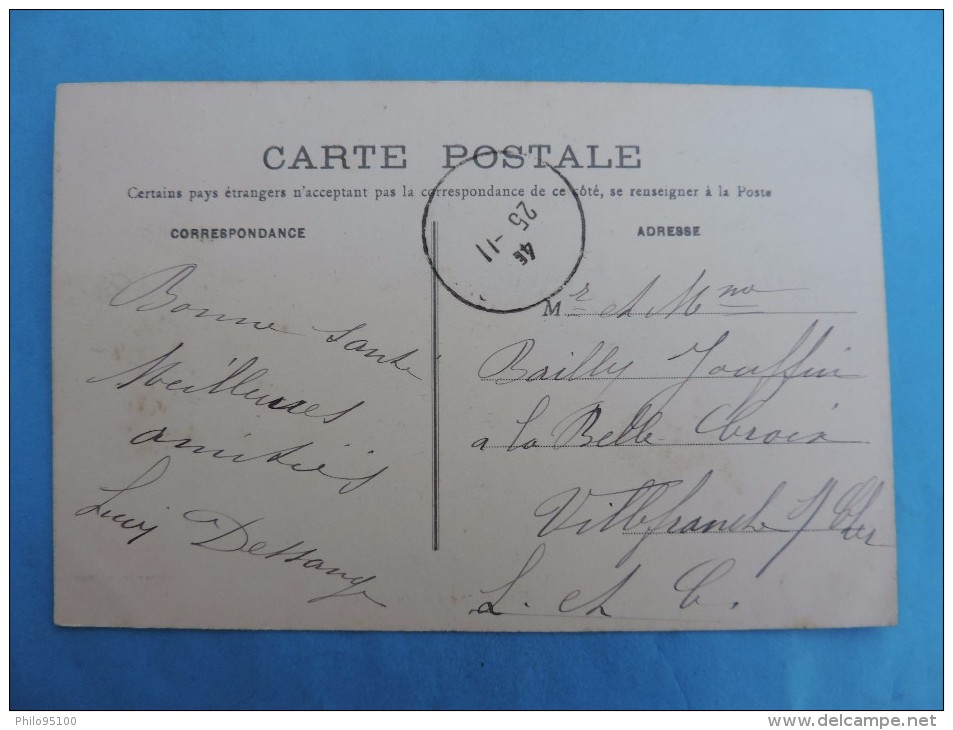 CARTE POSTALE
Certains pays étrangers n'acceptant pas la correspondance de ce côté, se renseigner à la Poste
CORRESPONDANCE
Bonne Santé
Meilleures
amitiés
Dessange
25 - 11
4E
ADRESSE
Mr et Mme
Bailly Jouffin
a la Belle Croix
Villefranche s/ Cher
L. et C.
Philo95100
www.delcampe.net